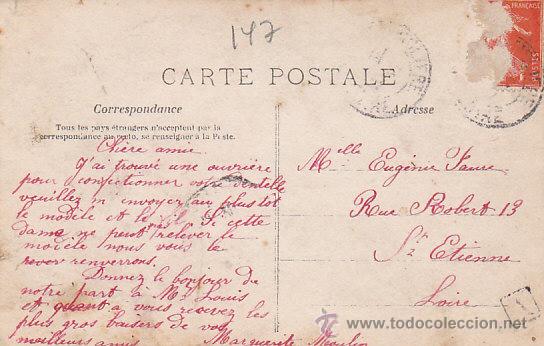 147
CARTE POSTALE
Correspondance
Adresse
Tous les pays étrangers n'acceptent pas la
correspondance au recto, se renseigner à la Poste.
Chère amie
J'ai trouvé une ouvrière
pour confectionner votre dentelle
veuillez m'envoyer au plus tôt
le modèle et le fil Si cette
dame ne peut relever le
modèle nous vous le
renverrons.
Donnez le bonjour de
notre part à Mr Louis
et quant à vous recevez les
plus gros baisers de vos
meilleurs amis
Marguerite Moulin
Melle Eugénie Faure
Rue Robert 13
St Etienne
Loire
1
FRANÇAISE
POSTES
www.todocoleccion.net